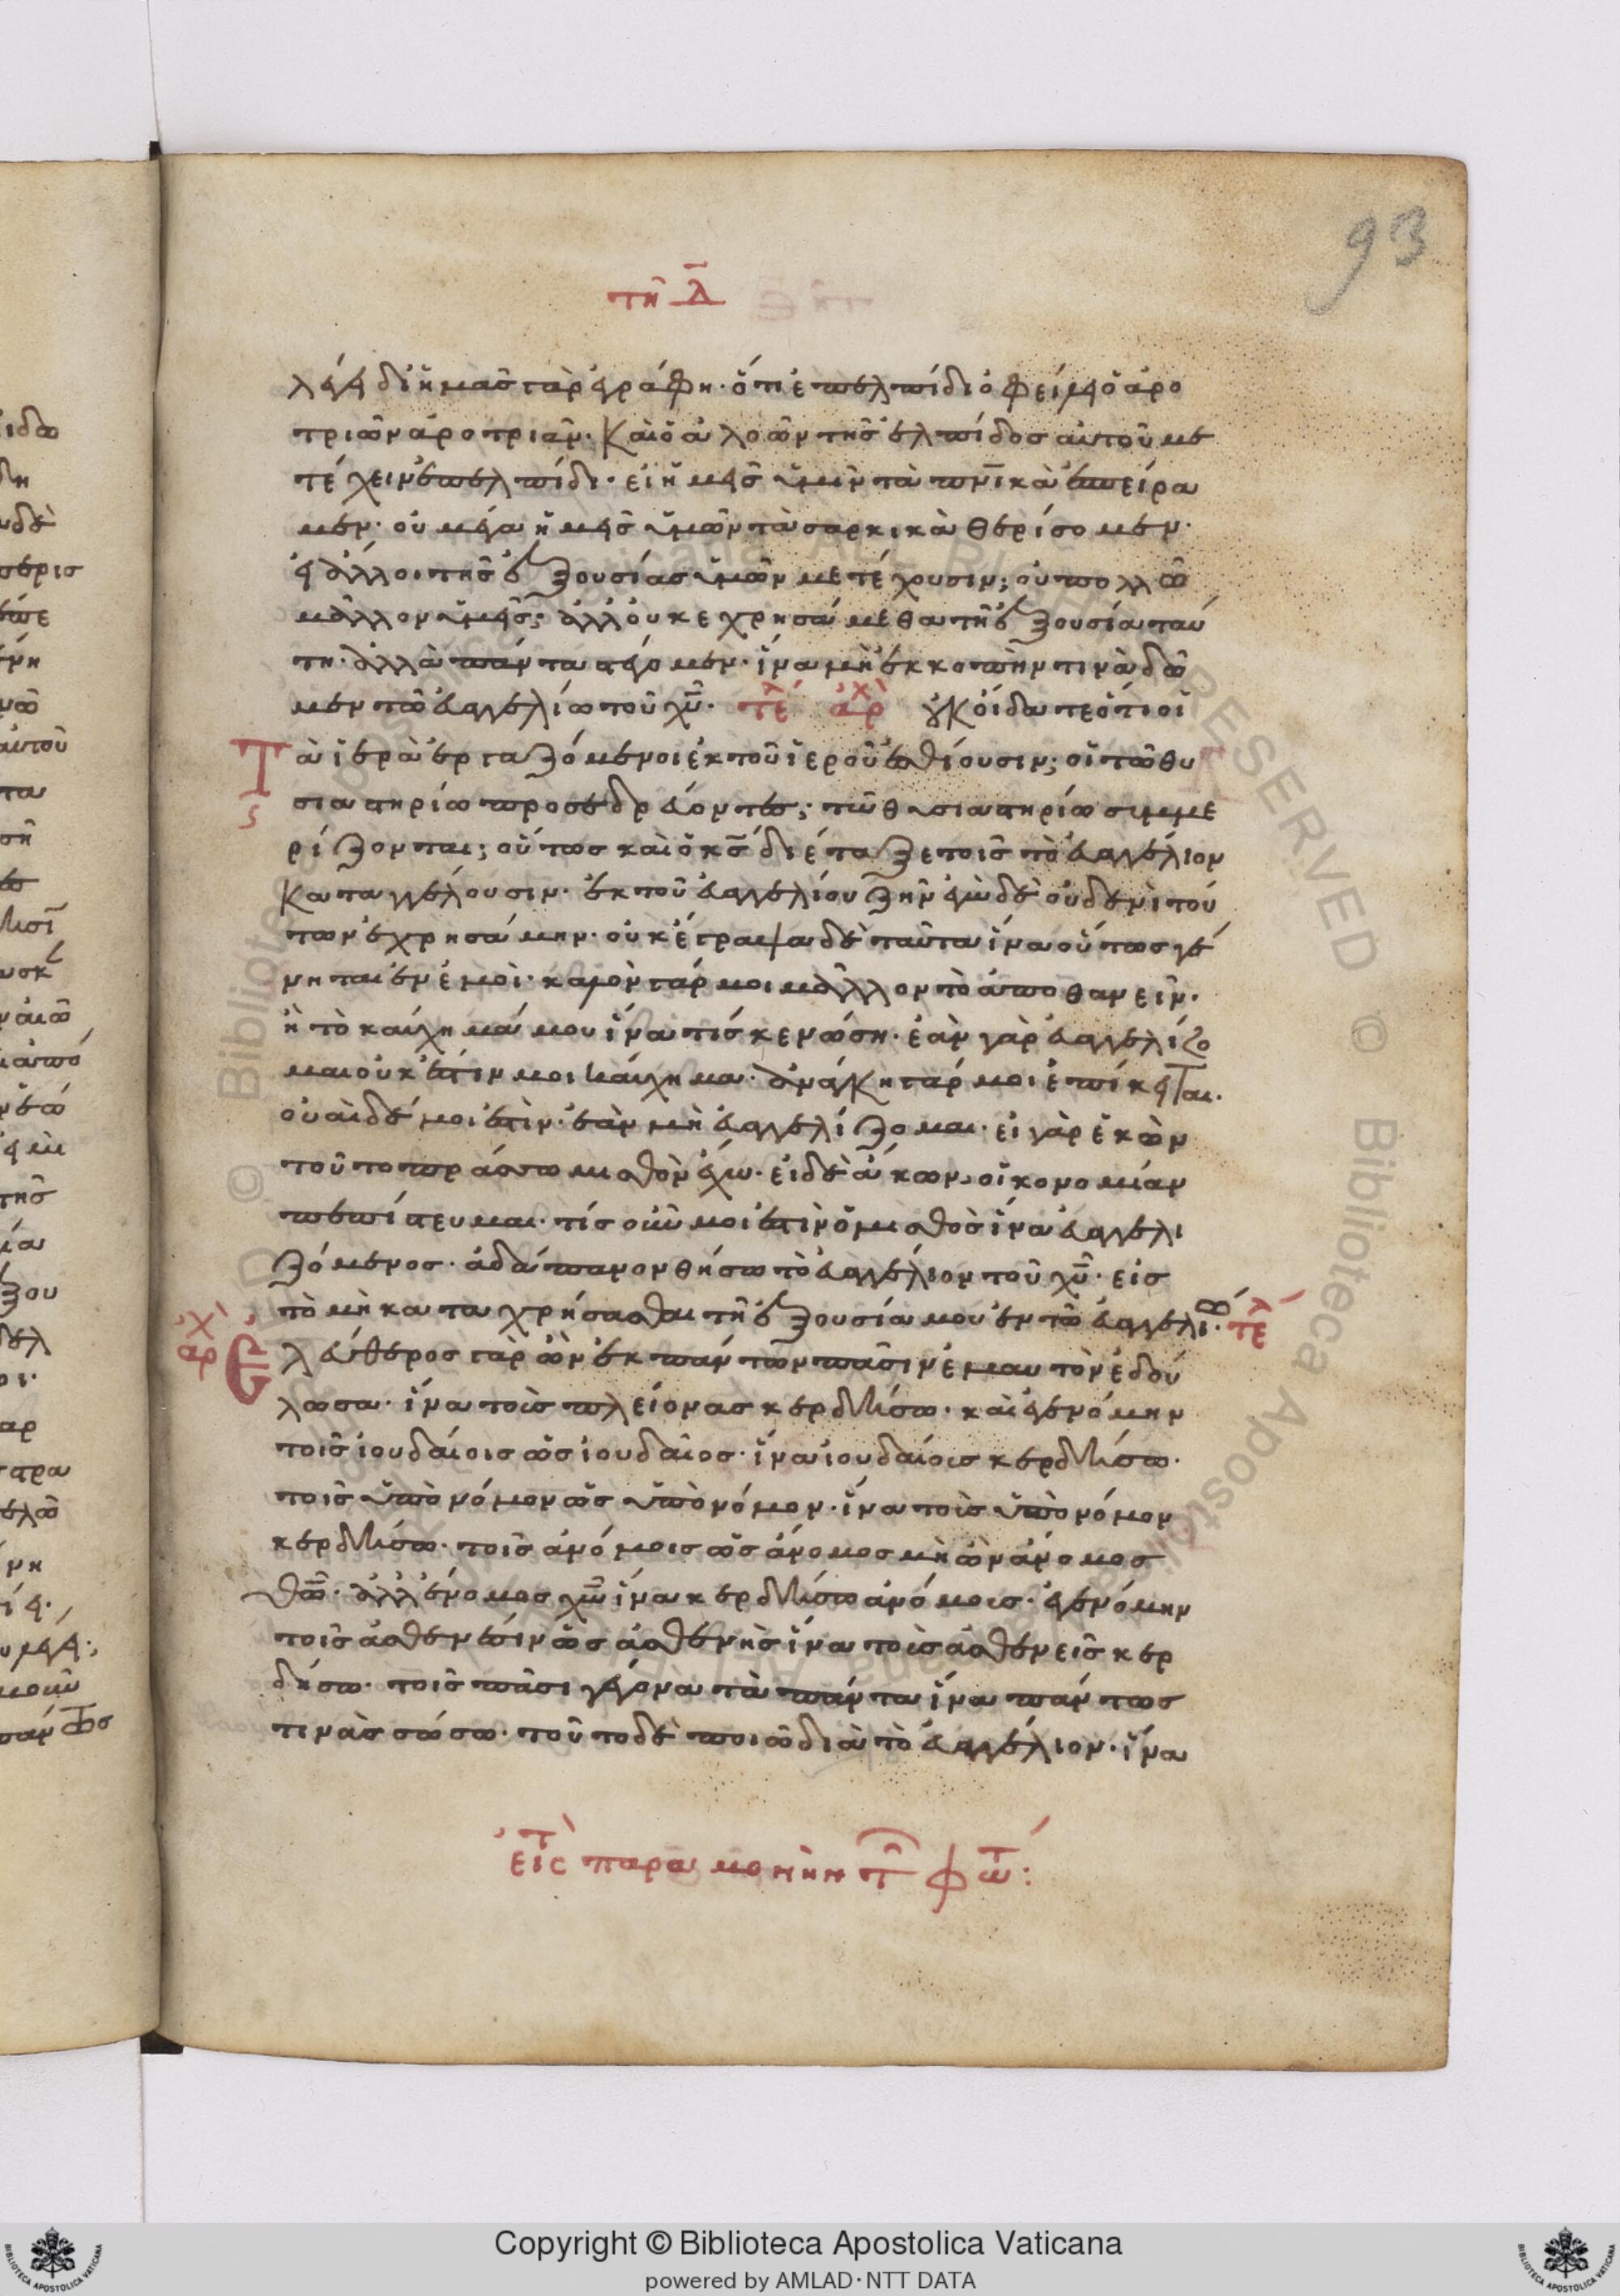 93
τῆ δ
λέγει δι' ἡμᾶς γὰρ ἐγράφη· ὅτι ἐπ' ἐλπίδι ὀφείλει ὁ ἀρο
τριῶν ἀροτριᾶν· καὶ ὁ ἀλοῶν τῆς ἐλπίδος αὐτοῦ με
τέχειν ἐπ' ἐλπίδι· εἰ ἡμεῖς ὑμῖν τὰ πνικὰ ἐσπείρα
μεν· οὐ μέγα ἡμεῖς ὑμῶν τὰ σαρκικὰ θερίσομεν·
εἰ ἄλλοι τῆς ἐξουσίας ὑμῶν μετέχουσιν; οὐ πολλῶ
μᾶλλον ἡμεῖς; ἀλλ' οὐκ ἐχρησάμεθα τῆ ἐξουσία ταύ
τη· ἀλλὰ πάντα στέγομεν· ἵνα μὴ ἐκκοπήν τινα δῶ
μεν τῶ εὐαγγελίω τοῦ χῦ· τέλ ἀρχ οὐκ οἴδατε ὅτι οἱ
Τὰ ἱερὰ ἐργαζόμενοι ἐκ τοῦ ἱεροῦ ἐσθίουσιν; οἱ τῶ θυ
σιαστηρίω προσεδρεύοντες; τῶ θυσιαστηρίω συμμε
ρίζονται; οὕτως καὶ ὁ κς διέταξε τοῖς τὸ εὐαγγέλιον
καταγγέλουσιν· ἐκ τοῦ εὐαγγελίου ζῆν ἐγὼ δὲ οὐδενὶ τού
των ἐχρησάμην· οὐκ ἔγραψα δὲ ταῦτα ἵνα οὕτως γέ
νηται ἐν ἐμοί· καλὸν γάρ μοι μᾶλλον τὸ ἀποθανεῖν·
ἢ τὸ καύχημά μου ἵνα τίς κενώση· ἐὰν γὰρ εὐαγγελίζο
μαι οὐκ ἔστιν μοι καύχημα· ἀνάγκη γάρ μοι ἐπίκειται·
οὐαὶ δέ μοι ἐστὶν· ἐὰν μὴ εὐαγγελίζομαι· εἰ γὰρ ἑκὼν
τοῦτο πράσσω μισθὸν ἔχω· εἰ δὲ ἄκων, οἰκονομίαν
πεπίστευμαι· τίς οὖν μοι ἐστὶν ὁ μισθὸς ἵνα εὐαγγελι
ζόμενος· ἀδάπανον θήσω τὸ εὐαγγέλιον τοῦ χῦ· εἰς
τὸ μὴ καταχρήσασθαι τῆ ἐξουσία μου ἐν τῶ εὐαγγελίω· τέλ
ἀρχ Ἐλεύθερος γὰρ ὢν ἐκ πάντων πᾶσιν ἐμαυτὸν ἐδού
λωσα· ἵνα τοὺς πλείονας κερδήσω· καὶ ἐγενόμην
τοῖς ἰουδαίοις ὡς ἰουδαῖος· ἵνα ἰουδαίους κερδήσω·
τοῖς ὑπὸ νόμον ὡς ὑπὸ νόμον· ἵνα τοὺς ὑπὸ νόμον
κερδήσω· τοῖς ἀνόμοις ὡς ἄνομος μὴ ὢν ἄνομος
θῶ· ἀλλ' ἔνομος χῶ ἵνα κερδήσω ἀνόμους· ἐγενόμην
τοῖς ἀσθενέσιν ὡς ἀσθενὴς ἵνα τοὺς ἀσθενεῖς κερ
δήσω· τοῖς πᾶσι γέγονα τὰ πάντα ἵνα πάντως
τινὰς σώσω· τοῦτο δὲ ποιῶ διὰ τὸ εὐαγγέλιον· ἵνα
εἰς τ παραμονὴν τῶν φώτ:
Copyright © Biblioteca Apostolica Vaticana
powered by AMLAD·NTT DATA